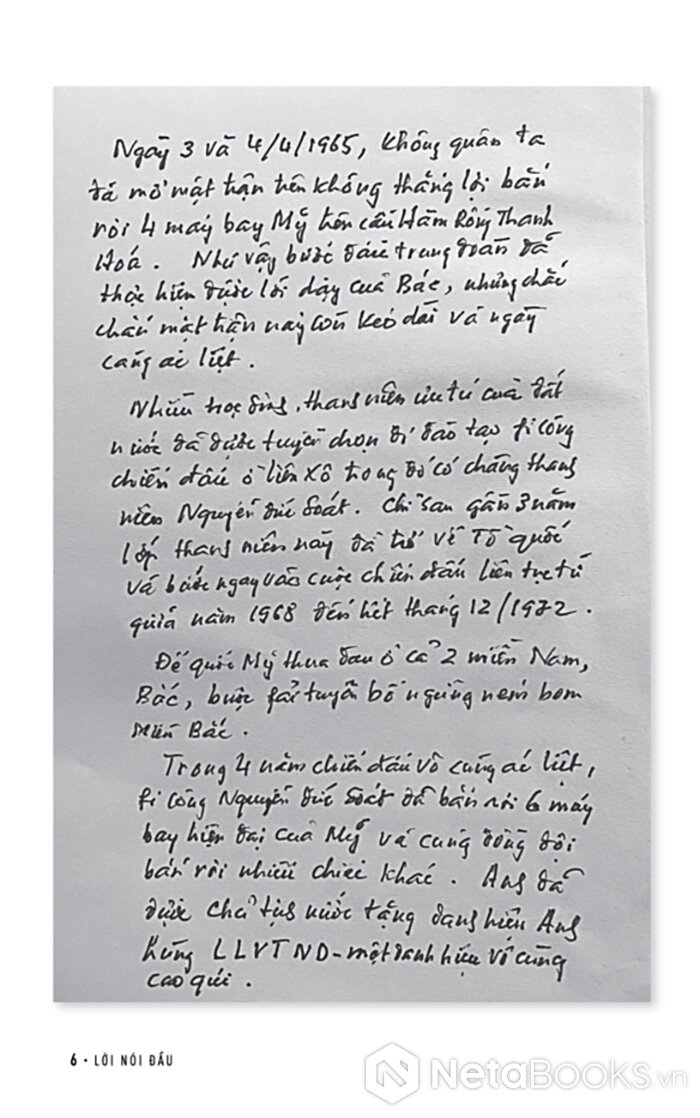 Ngày 3 và 4/4/1965, không quân ta
đã mở mặt trận trên không thắng lợi bắn
rơi 4 máy bay Mỹ trên cầu Hàm Rồng Thanh
Hoá. Như vậy bước đầu trung đoàn đã
thực hiện được lời dạy của Bác, nhưng chắc
chắn mặt trận này còn kéo dài và ngày
càng ác liệt.
Nhiều học sinh, thanh niên ưu tú của đất
nước đã được tuyển chọn đi đào tạo fi công
chiến đấu ở Liên Xô trong đó có chàng thanh
niên Nguyễn Đức Soát. Chỉ sau gần 3 năm
lớp thanh niên này đã trở về Tổ quốc
và bước ngay vào cuộc chiến đấu liên tục từ
giữa năm 1968 đến hết tháng 12/1972.
Đế quốc Mỹ thua đau ở cả 2 miền Nam,
Bắc, buộc fải tuyên bố ngừng ném bom
miền Bắc.
Trong 4 năm chiến đấu vô cùng ác liệt,
fi công Nguyễn Đức Soát đã bắn rơi 6 máy
bay hiện đại của Mỹ và cùng đồng đội
bắn rơi nhiều chiếc khác. Anh đã
được Chủ tịch nước tặng danh hiệu Anh
hùng LLVTND - một danh hiệu vô cùng
cao quí.
6 • LỜI NÓI ĐẦU
NetaBooks.vn